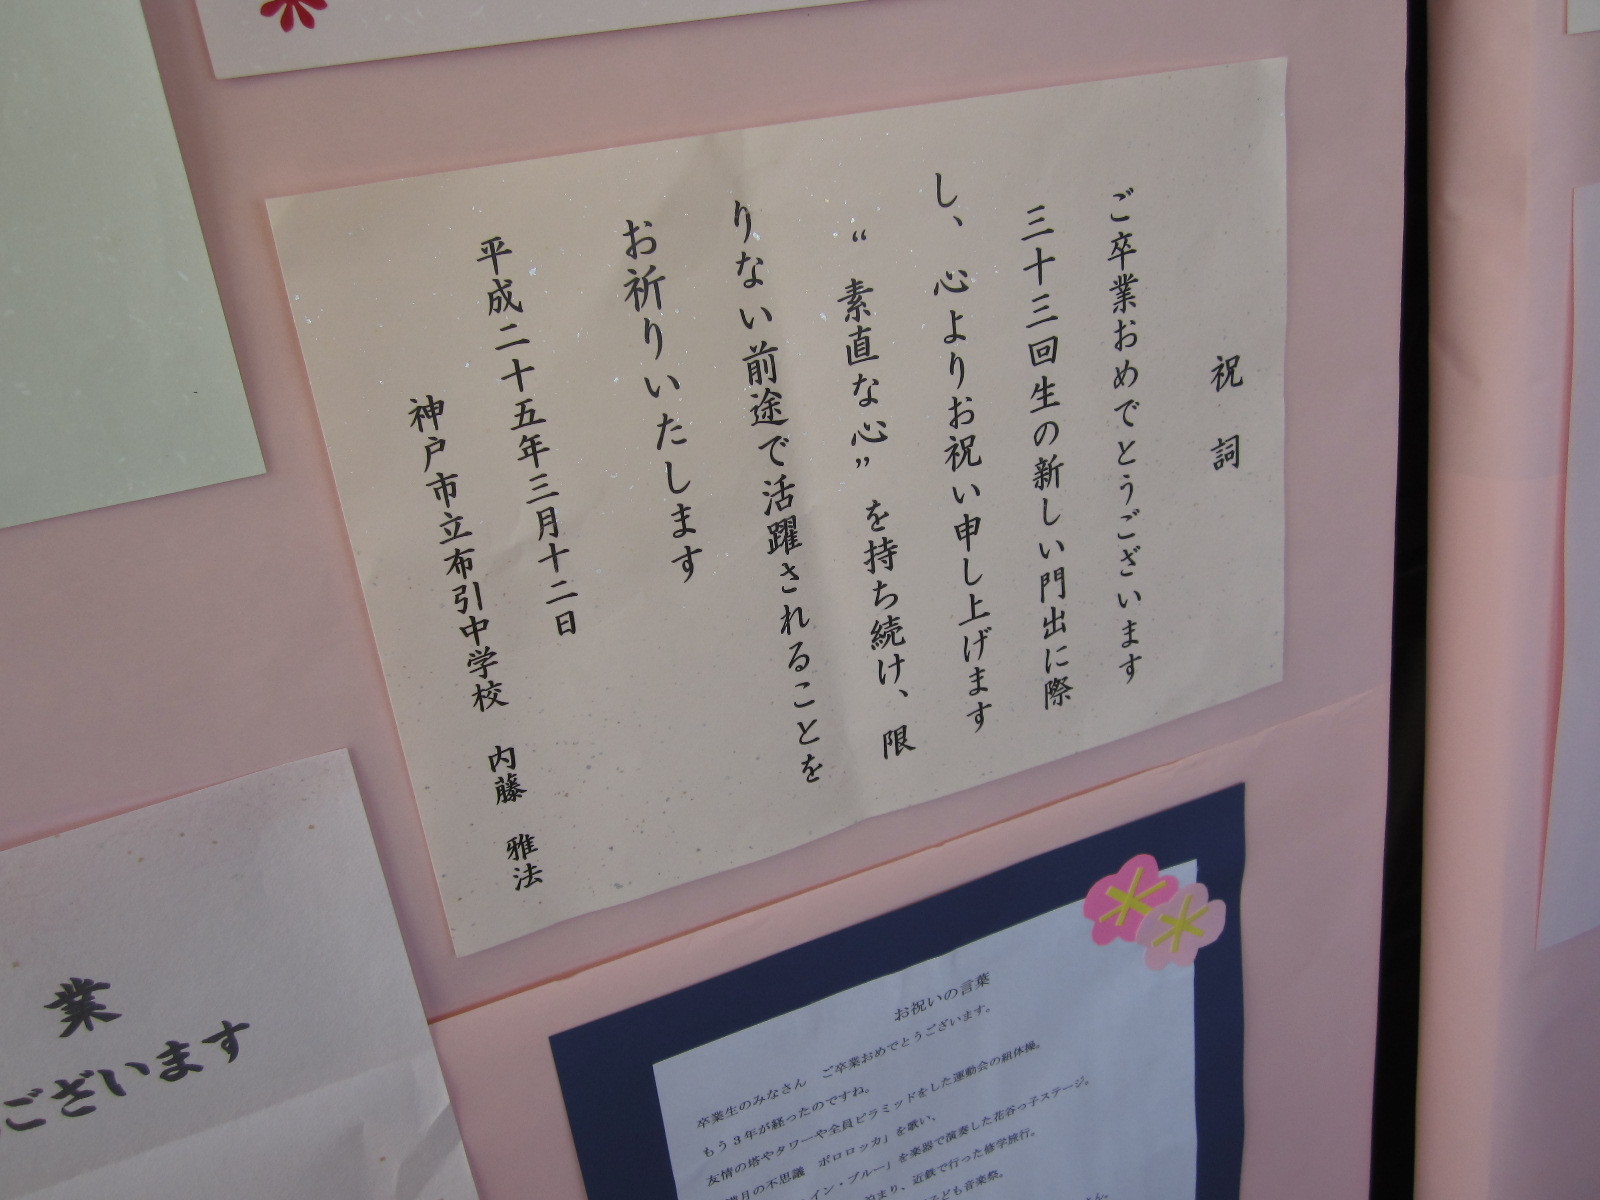 祝　詞
ご卒業おめでとうございます
三十三回生の新しい門出に際
し、心よりお祝い申し上げます
“素直な心”を持ち続け、限
りない前途で活躍されることを
お祈りいたします
平成二十五年三月十二日
神戸市立布引中学校　内藤　雅法
業
ございます
お祝いの言葉
卒業生のみなさん　ご卒業おめでとうございます。
もう３年が経ったのですね。
友情の塔やタワーや全員ピラミッドをした運動会の組体操。
月の不思議　ポロロッカ」を歌い、
イン・ブルー」を楽器で演奏した花谷っ子ステージ。
まり、近鉄で行った修学旅行。
子ども音楽祭。